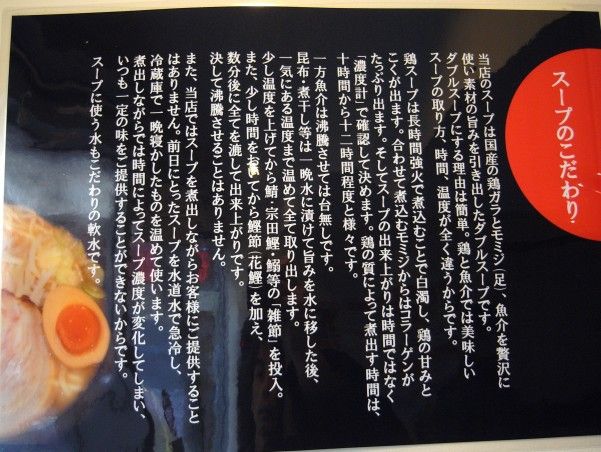 スープのこだわり
当店のスープは国産の鶏ガラとモミジ(足)、魚介を贅沢に
使い素材の旨みを引き出したダブルスープです。
ダブルスープにする理由は簡単。鶏と魚介では美味しい
スープの取り方、時間、温度が全く違うからです。
鶏スープは長時間強火で煮込むことで白濁し、鶏の甘みと
こくが出ます。合わせて煮込むモミジからはコラーゲンが
たっぷり出ます。そしてスープの出来上がりは時間ではなく
「濃度計」で確認して決めます。鶏の質によって煮出す時間は、
十時間から十二時間程度と様々です。
一方魚介は沸騰させては台無しです。
昆布・煮干し等は一晩水に漬けて旨みを水に移した後、
一気にある温度まで温めて全て取り出します。
少し温度を上げてから鯖・宗田鰹・鰯等の「雑節」を投入。
また、少し時間をおいてから鰹節(花鰹)を加え、
数分後に全てを漉して出来上がりです。
決して沸騰させることはありません。
また、当店ではスープを煮出しながらお客様にご提供すること
はありません。前日にとったスープを水道水で急冷し、
冷蔵庫で一晩寝かしたものを温めて使います。
煮出しながらでは時間によってスープ濃度が変化してしまい、
いつも一定の味をご提供することができないからです。
スープに使う水もこだわりの軟水です。